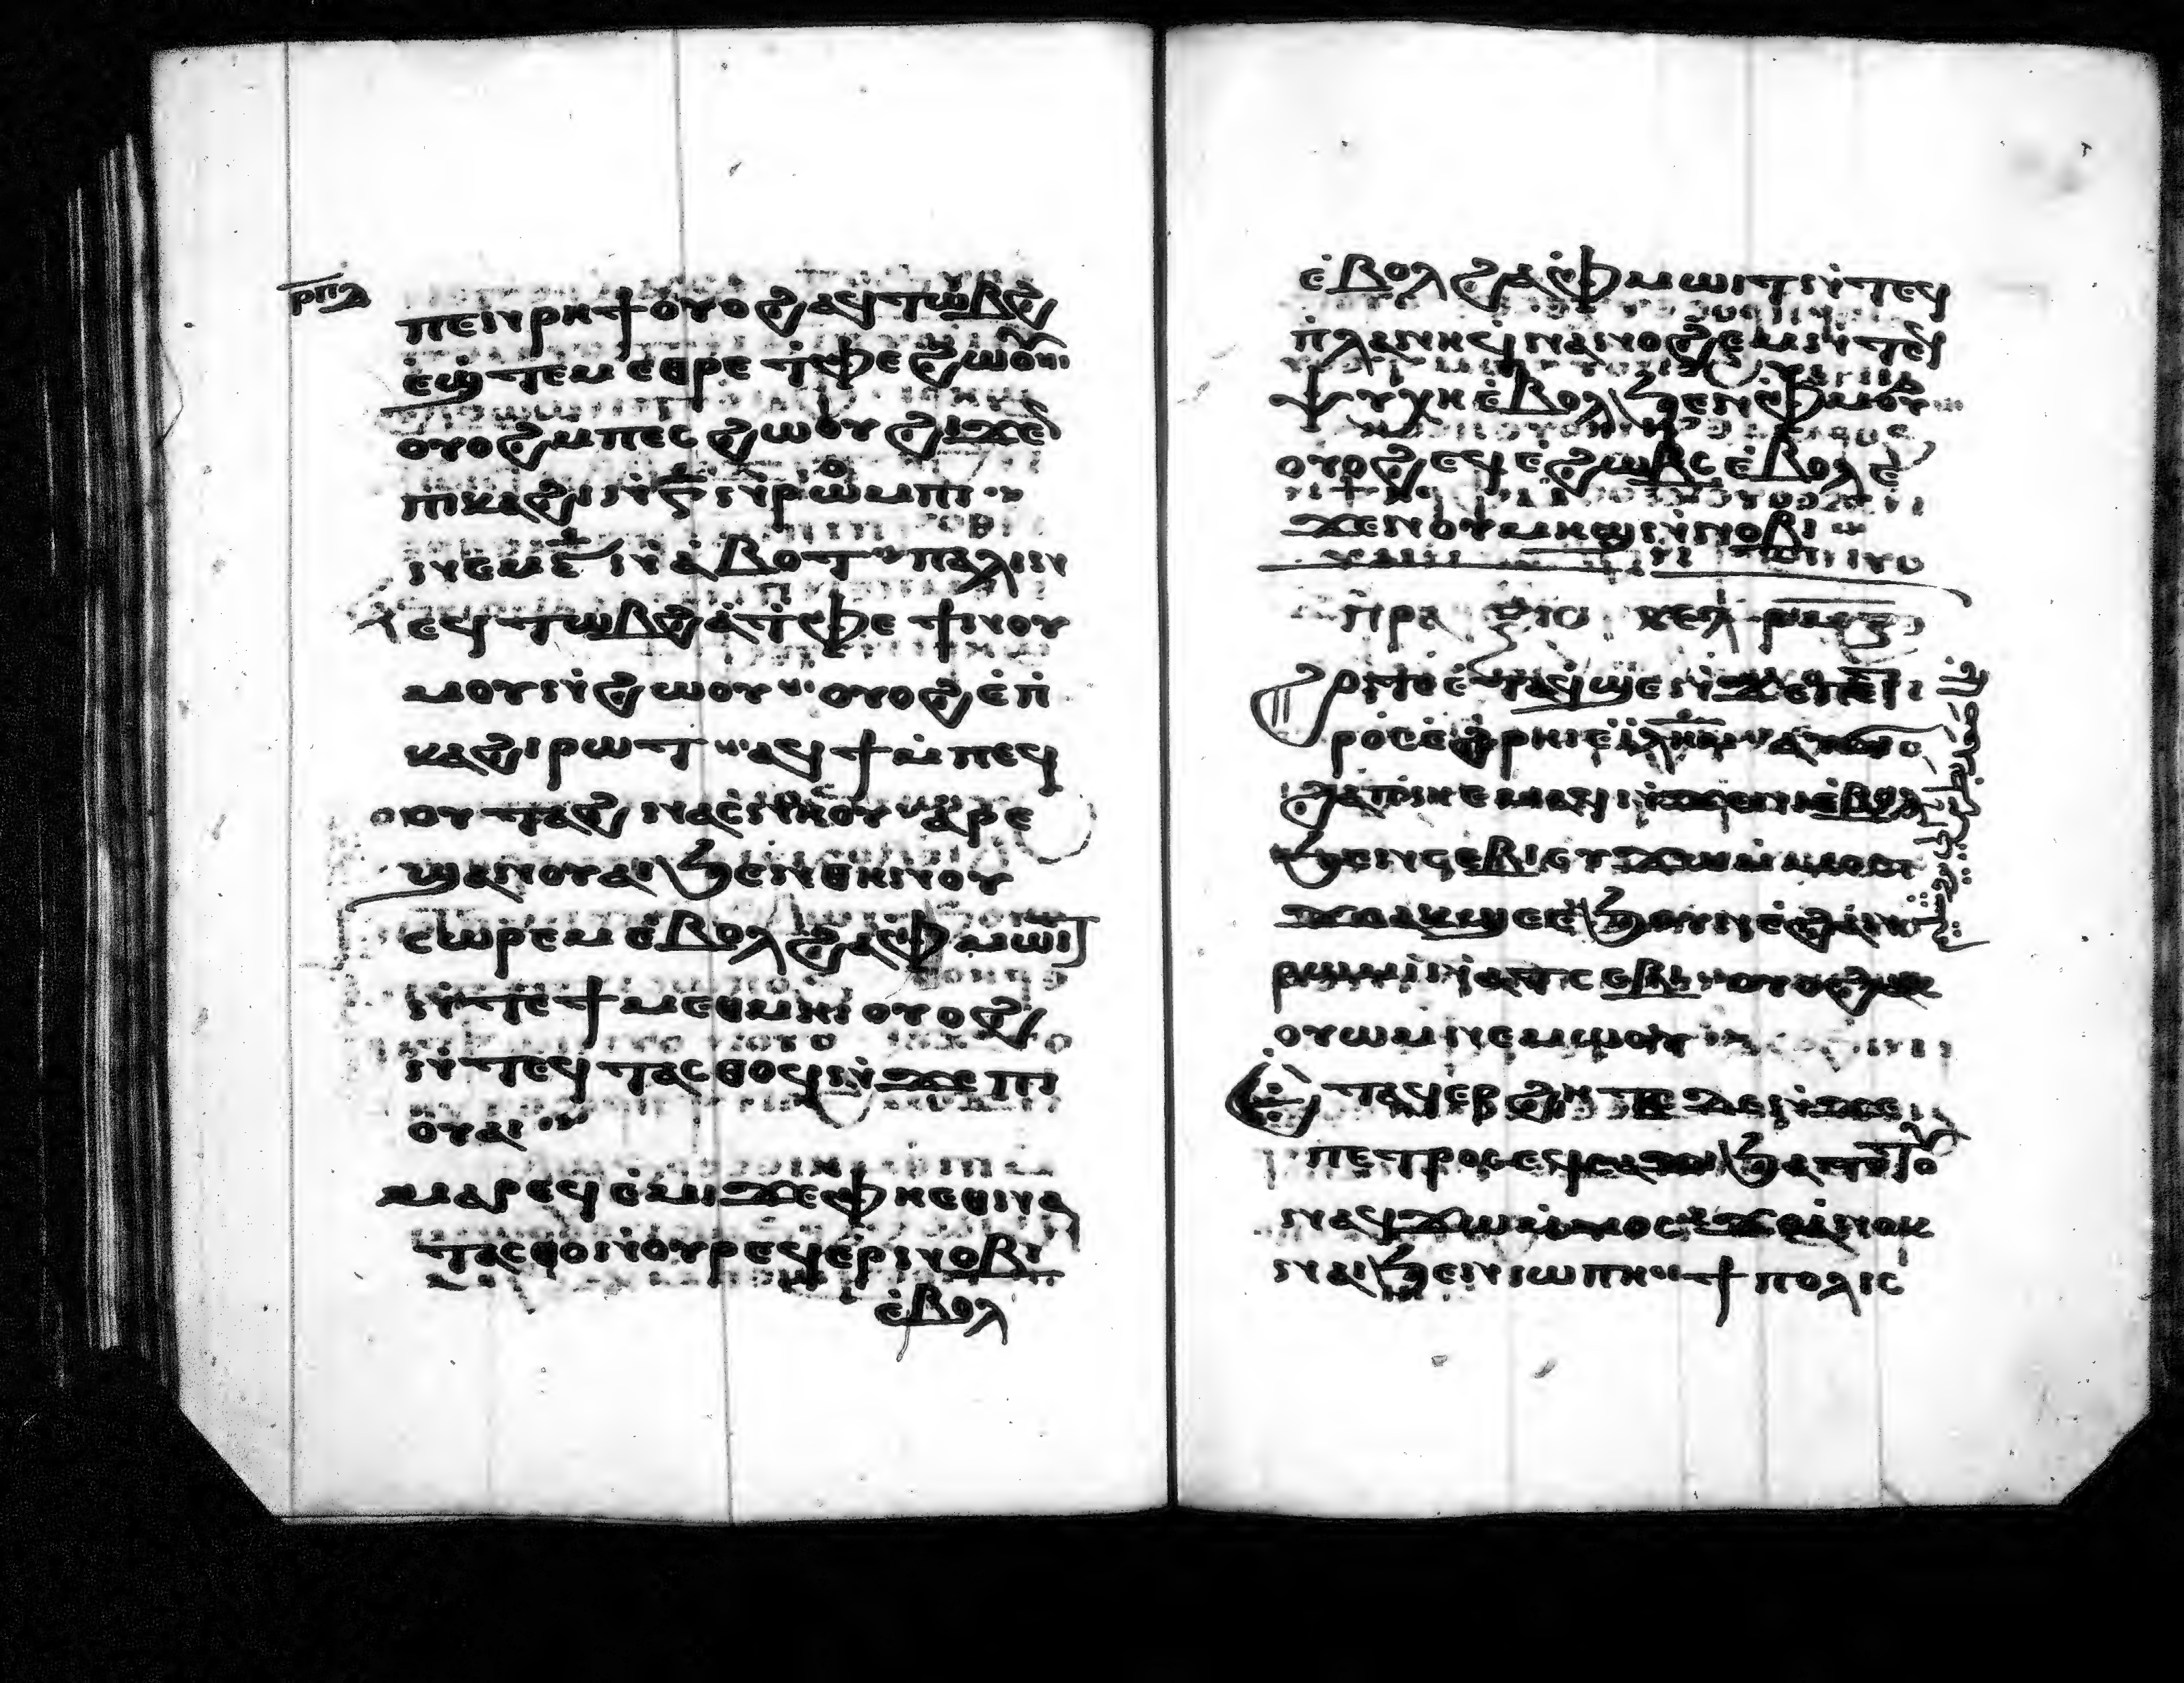 ⲣⲡⲁ
ⲡⲉⲛⲣⲏϯ ⲟⲩⲟϩ ⲁϥⲧⲱⲃϩ
ⲉϣⲧⲉⲙⲉⲑⲣⲉ ⲧⲫⲉ ϩⲱⲟⲩⲛ
ⲟⲩⲟϩ ⲙⲡⲉⲥϩⲱⲟⲩ ϩⲓϫⲉⲛ
ⲡⲕⲁϩⲓ ⲛⲅ̅ ⲛⲣⲱⲙⲡⲓ
ⲛⲉⲙ ⲛⲁⲃⲟⲧ ⲡⲁⲗⲓⲛ
ⲉϥⲧⲱⲃϩ ⲁⲧⲫⲉ ϯⲛⲟⲩ
ⲙⲟⲩⲛϩⲱⲟⲩ ⲟⲩⲟϩ ⲉⲡ
ⲕⲁϩⲓ ⲣⲱⲧ ⲁϥϯ ⲙⲡⲉϥ
ⲟⲩⲧⲁϩ ⲛⲁⲥⲛⲏⲟⲩ ⲁⲣⲉ
ϣⲁⲛⲟⲩⲁⲓ ϧⲉⲛ ⲑⲏⲛⲟⲩ
ⲥⲱⲣⲉⲙ ⲉⲃⲟⲗ ϩⲁ ⲫⲙⲱⲓⲧ
ⲛⲧⲉ ϯⲙⲉⲑⲙⲏⲓ ⲟⲩⲟϩ
ⲛⲧⲉϥⲧⲁⲥⲑⲟϥ ⲛϫⲉ ⲡⲓ
ⲟⲩⲁⲓ
ⲙⲁⲣⲉϥⲉⲙⲓ ϫⲉ ⲫⲏⲉⲑⲛⲁ
ⲧⲁⲥⲑⲟ ⲛⲟⲩⲣⲉϥⲉⲣⲛⲟⲃⲓ
ⲉⲃⲟⲗ
ⲉⲃⲟⲗ ϩⲁ ⲫⲙⲱⲓⲧ ⲛⲧⲉϥ
ⲡⲗⲁⲛⲏ ϥⲛⲁⲛⲟϩⲉⲙ ⲛⲧⲉϥ
ⲯⲩⲭⲏ ⲉⲃⲟⲗ ϧⲉⲛ ⲫⲙⲟⲩ
ⲟⲩⲟϩ ⲉϥⲉϩⲱⲃⲥ ⲉⲃⲟⲗ ⲉ
ϫⲉⲛ ⲟⲩⲙⲏϣ ⲛⲛⲟⲃⲓ
ⲡⲣⲁ ⲕⲉⲗ
ϩⲟⲧⲉ ⲉⲧⲁϥϣⲉ ⲛϫⲉ ⲡⲉⲧ
ⲣⲟⲥ ⲉϩⲣⲏⲓ ⲉⲓⲗⲏⲙ
ϩⲁⲡ ⲛⲉⲙⲁϥ ⲛϫⲉ ⲛⲏⲉⲃⲟⲗ
ϧⲉⲛ ⲥⲉⲃⲓ ⲉⲩϫⲱ ⲙⲙⲟⲥ
ϫⲉ ⲁⲕϣⲉ ⲉϧⲟⲩⲛ ⲉϩⲁⲛ
ⲣⲱⲙⲓ ⲛⲁⲧⲥⲉⲃⲓ ⲟⲩⲟϩ ⲁⲕ
ⲟⲩⲱⲙ ⲛⲉⲙⲱⲟⲩ
ⲉⲧⲁϥⲉⲣϩⲏⲧⲥ ⲇⲉ ⲛϫⲉ
ⲡⲉⲧⲣⲟⲥ ⲉϥⲥⲁϫⲓ ϧⲁⲧⲟⲧⲟⲩ
ⲛⲁϥϫⲱ ⲙⲙⲟⲥ ϫⲉ ⲁⲛⲟⲕ
ⲛⲁⲓ ϧⲉⲛ ⲓⲱⲡⲏ ϯⲡⲟⲗⲓⲥ